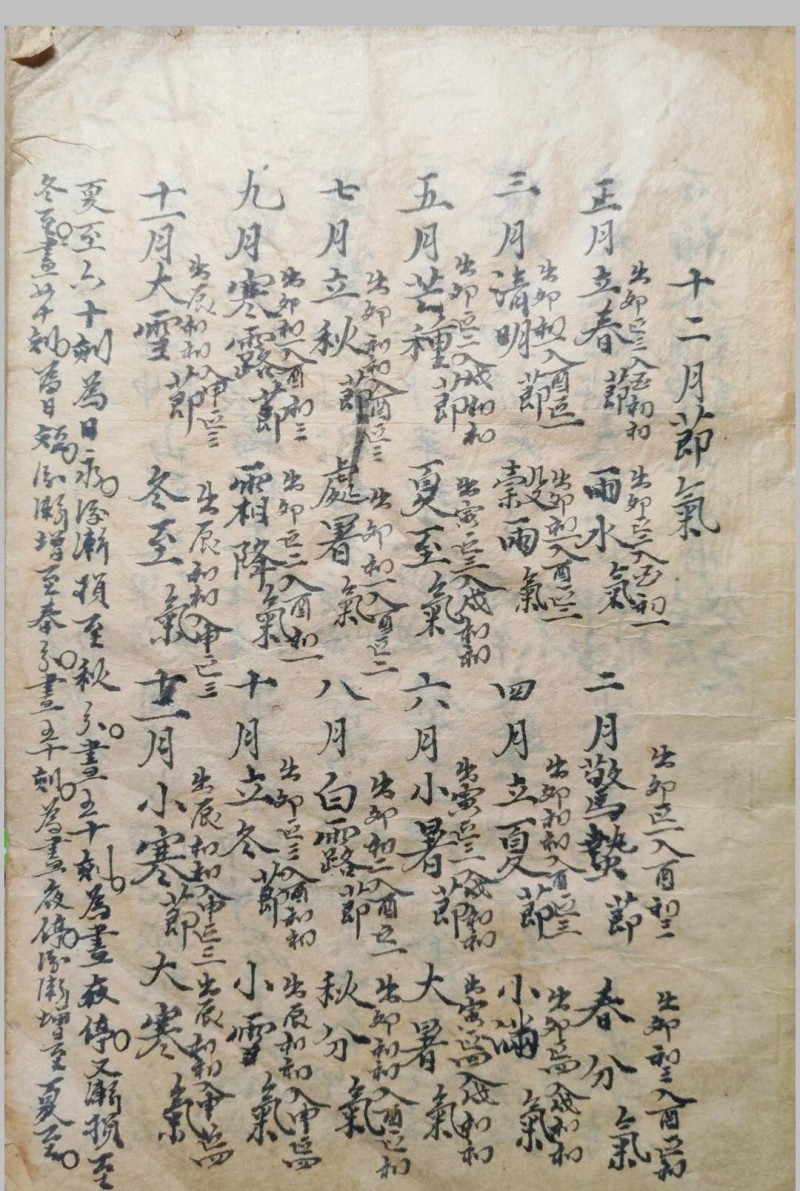 十二月節氣
出卯正三入酉初初 出卯正三入酉初一 出卯正一入酉初二 出卯初三入酉正初
正月立春節 雨水氣 二月驚蟄節 春分氣
出卯初二入酉正一 出卯初一入酉正三 出卯初初入酉正三 出卯正四入戌初初
三月清明節 穀雨氣 四月立夏節 小滿氣
出卯正二入戌初初 出寅正三入戌初初 出寅正三入戌初初 出寅正四入戌初初
五月芒種節 夏至氣 六月小暑節 大署氣
出卯初初入酉正三 出卯初一入酉正二 出卯初二入酉正一 出卯初初入酉正初
七月立秋節 處署氣 八月白露節 秋分氣
出卯初一入酉初三 出卯正二入酉初一 出卯正三入酉初初 出辰初初入申正四
九月寒露節 霜降氣 十月立冬節 小雪氣
出辰初初入申正三 出辰初初入申正三 出辰初初入申正三 出辰初初入申正四
十一月大雪節 冬至氣 十二月小寒節 大寒氣
夏至六十刻為日永後漸損至秋分晝五十刻為晝夜停又漸損至
冬至晝四十刻為日短後漸增至春分晝五十刻為晝夜停後漸增至夏至